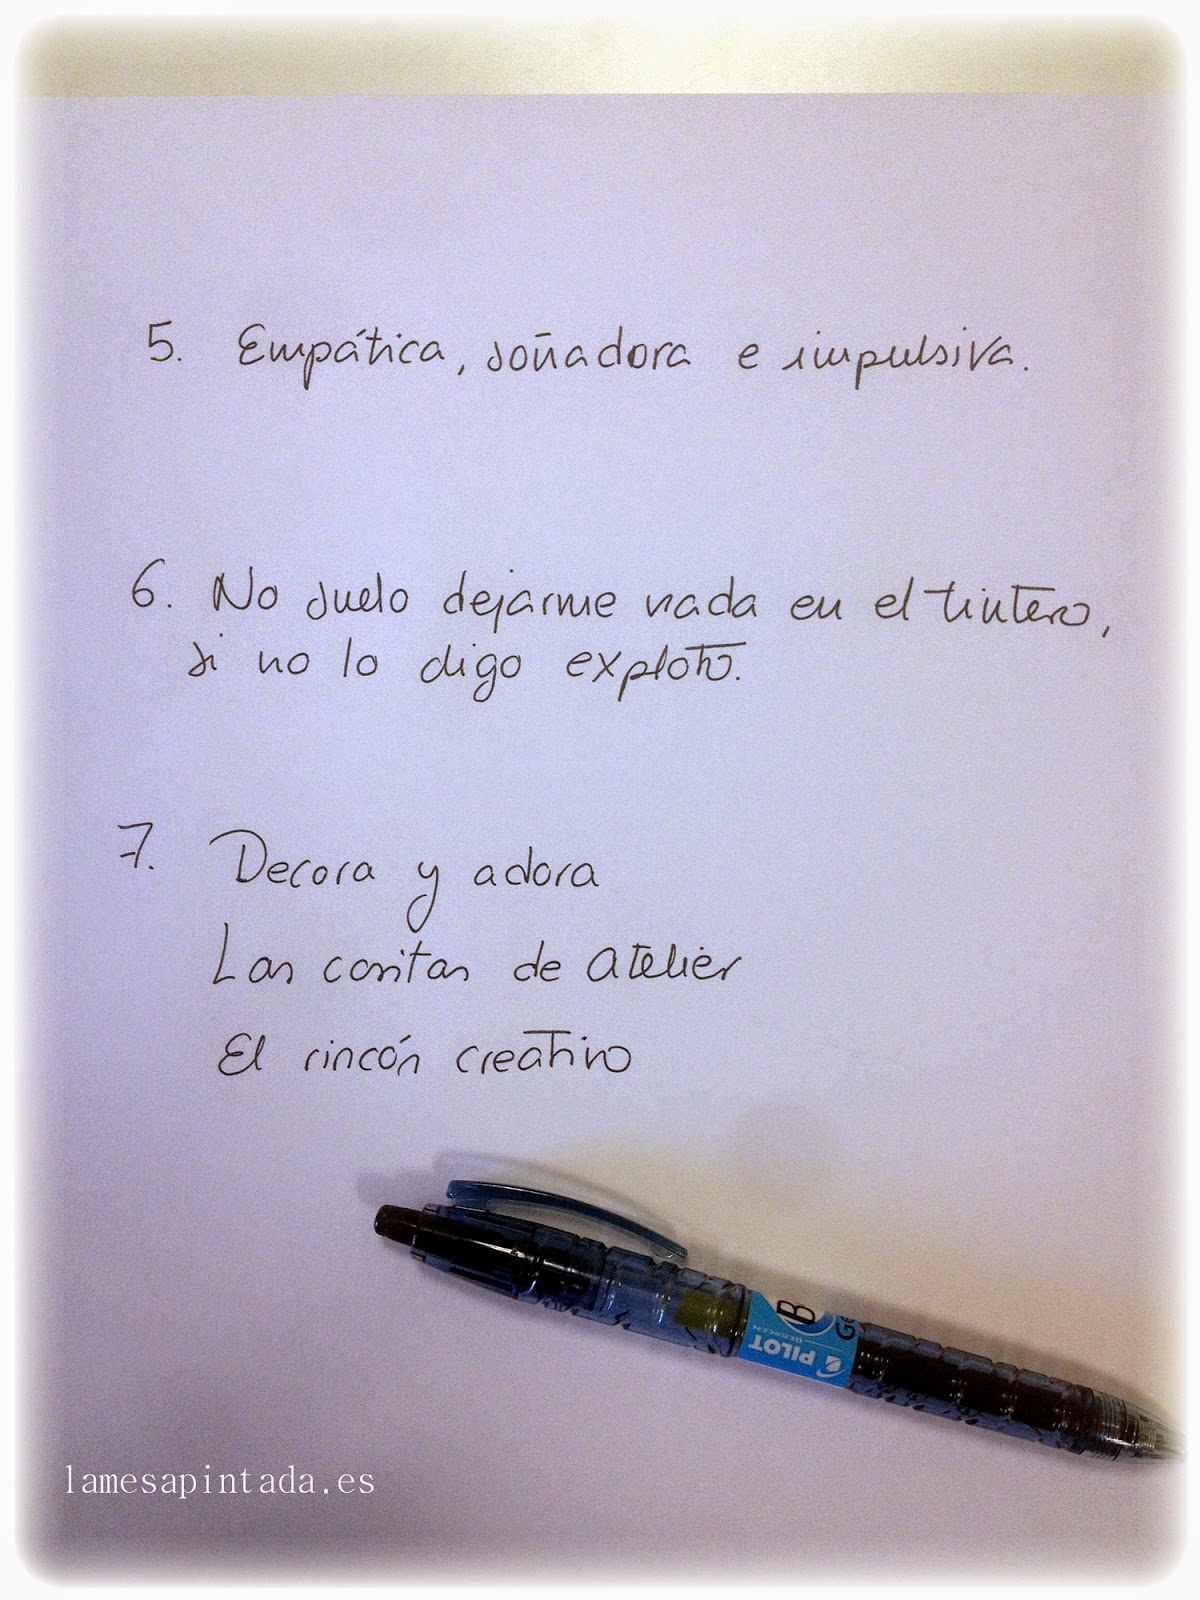 5. Empática, soñadora e impulsiva.
6. No suelo dejarme nada en el tintero,
si no lo digo exploto.
7. Decora y adora
Las cositas de atelier
El rincón creativo
B
PILOT
BEGREEN
lamesapintada.es